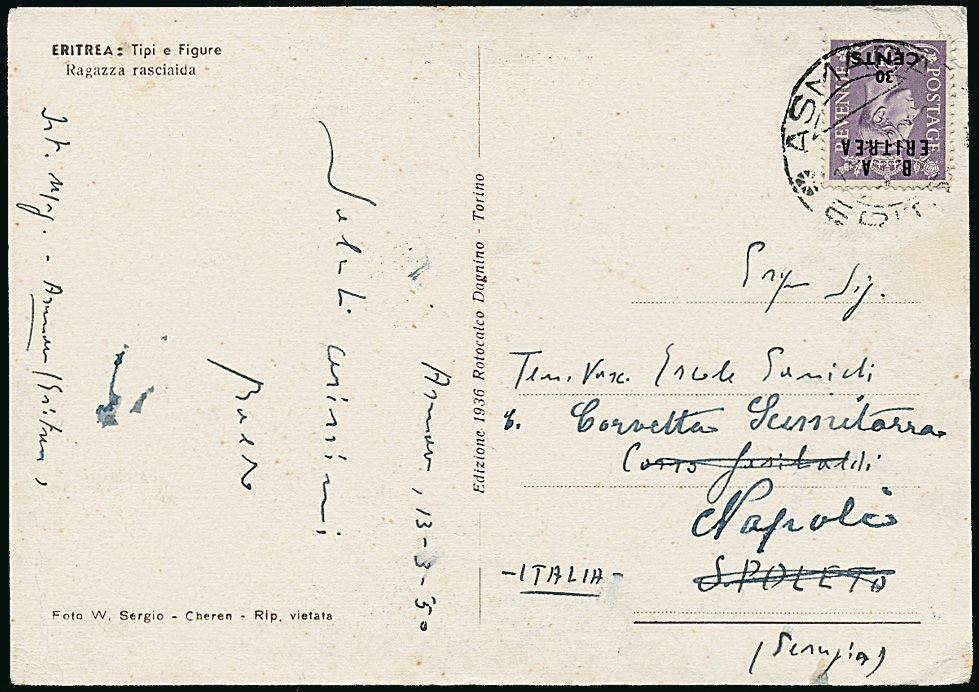 ERITREA: Tipi e Figure
Ragazza rasciaida
Saluti carissimi
Asmara, 13-3-50
Foto W. Sergio - Cheren - Rip. vietata
Edizione 1936 Rotocalco Dagnino - Torino
ASMARA
POSTAGE
REVENUE
30
CENTS
B. A
ERITREA
Sig.
Ten. Vasc. Ercole
Corvetta Scimitarra
Corso Garibaldi
Napoli
SPOLETO
-ITALIA-
(Perugia)